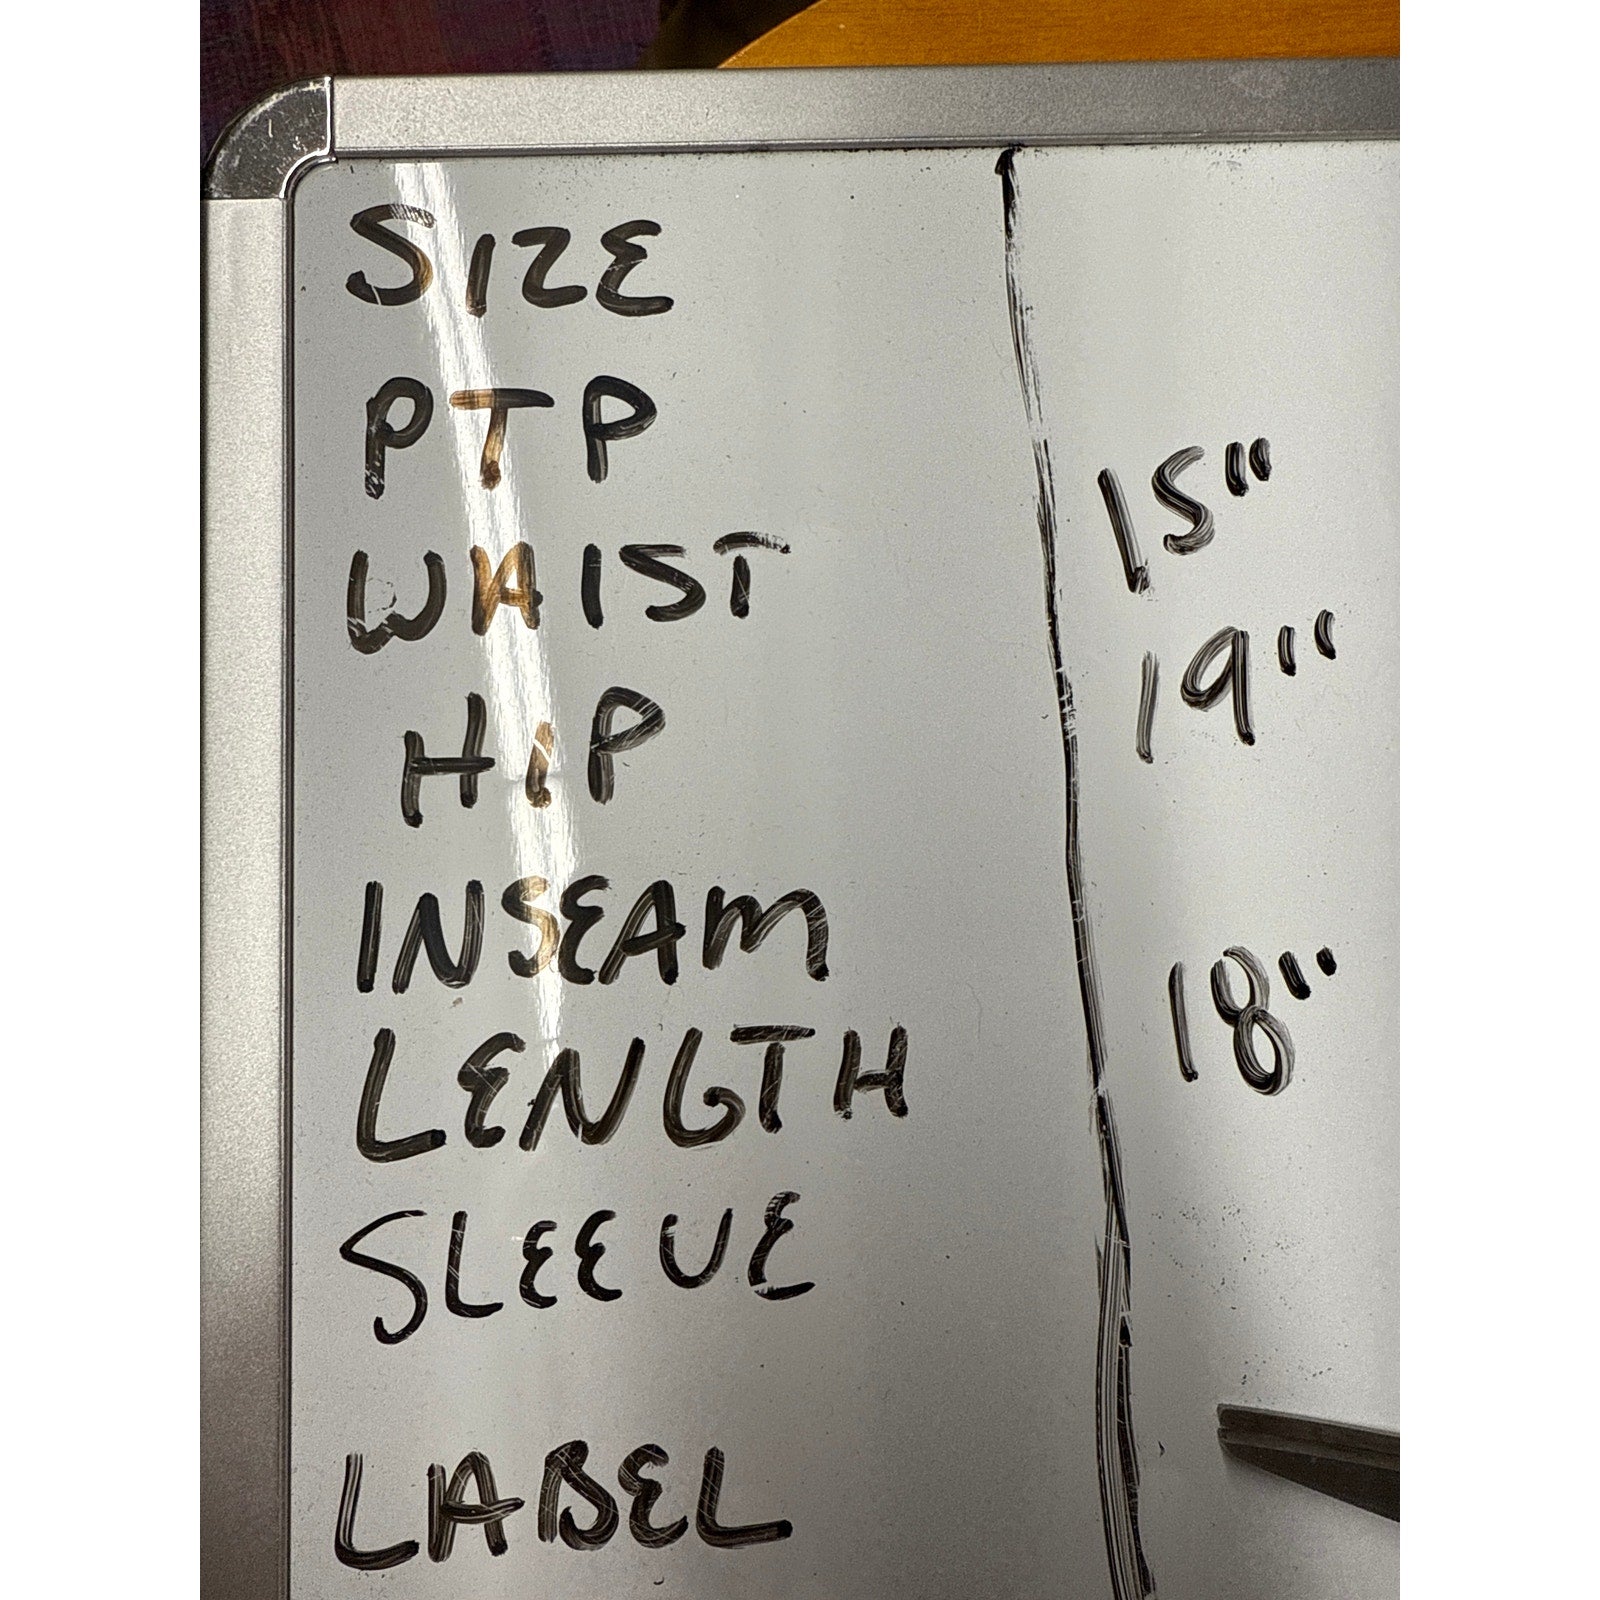 SIZE
PTP
WAIST 15"
HIP 19"
INSEAM
LENGTH 18"
SLEEVE
LABEL